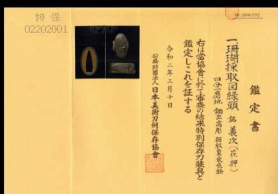 鑑定書
一 珊瑚採取図縁頭 銘 義次（花押）
四分一磨地
右は當協會に於て審査の結果特別保存刀装具と
鑑定しこれを証する
令和二年三月十日
公益財団法人日本美術刀剣保存協會
特保
02202001